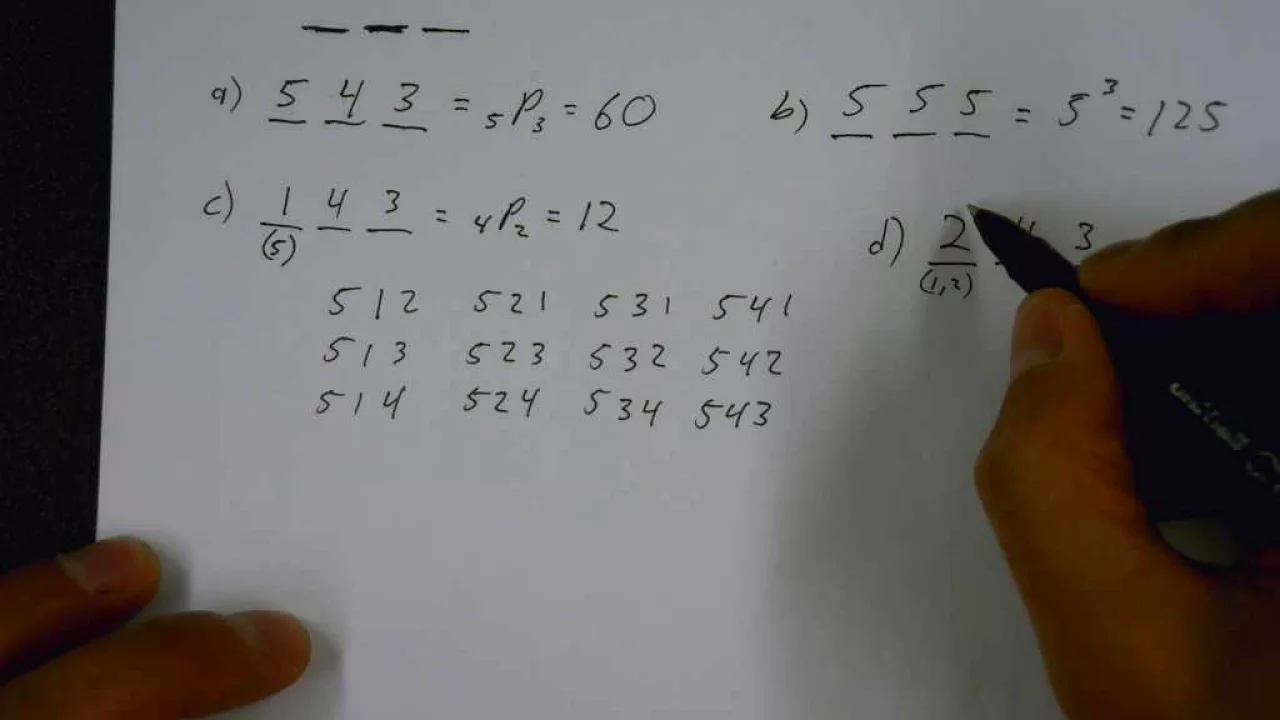 a) 5 4 3 = ₅P₃ = 60
b) 5 5 5 = 5³ = 125
c) 1 4 3 = ₄P₂ = 12
(5)
d) 2 4 3
(1,2)
512 521 531 541
513 523 532 542
514 524 534 543